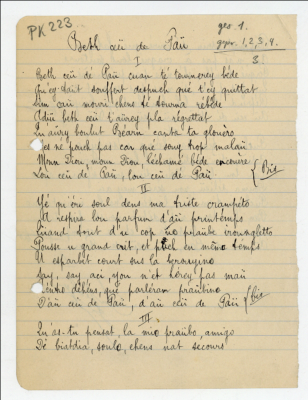 PK 223
ger. 1.
1, 2, 3, 4.
Beth cèu de Pau
8.
I
Beth cèu de Pau cuan té tournerey béde
Qu'ey dait souffert despuch que t'ey quittat
Sim cau mouri chens té tourna rebéde
Adiu beth cèu t'aurey pla régrettat
Qu'aurey boulut Béarn canta ta glouèro
Jes né pouch pas car que souy trop malau
Moun Diou, moun Diou, lechamé béde encouère
Lou cèu de Pau, lou cèu de Pau
Bis
II
Yé qu'ère soul dens ma triste crampéto
Et respira lou parfum d'aù printémps
Quand tout d'u cop uo praube irounglétto
Pousse u grand crit, et au mêmo temps
U esparbèt court sus la
say, say, aci, you n'et hérey pas mau
dehéns, que parléram
D'aù cèu de Pau, d'aù cèu de Pau
Bis
III
Qu'as-tu pensat, la mio praubo, amigo
Dé biatdia, soulo, chens nat secours